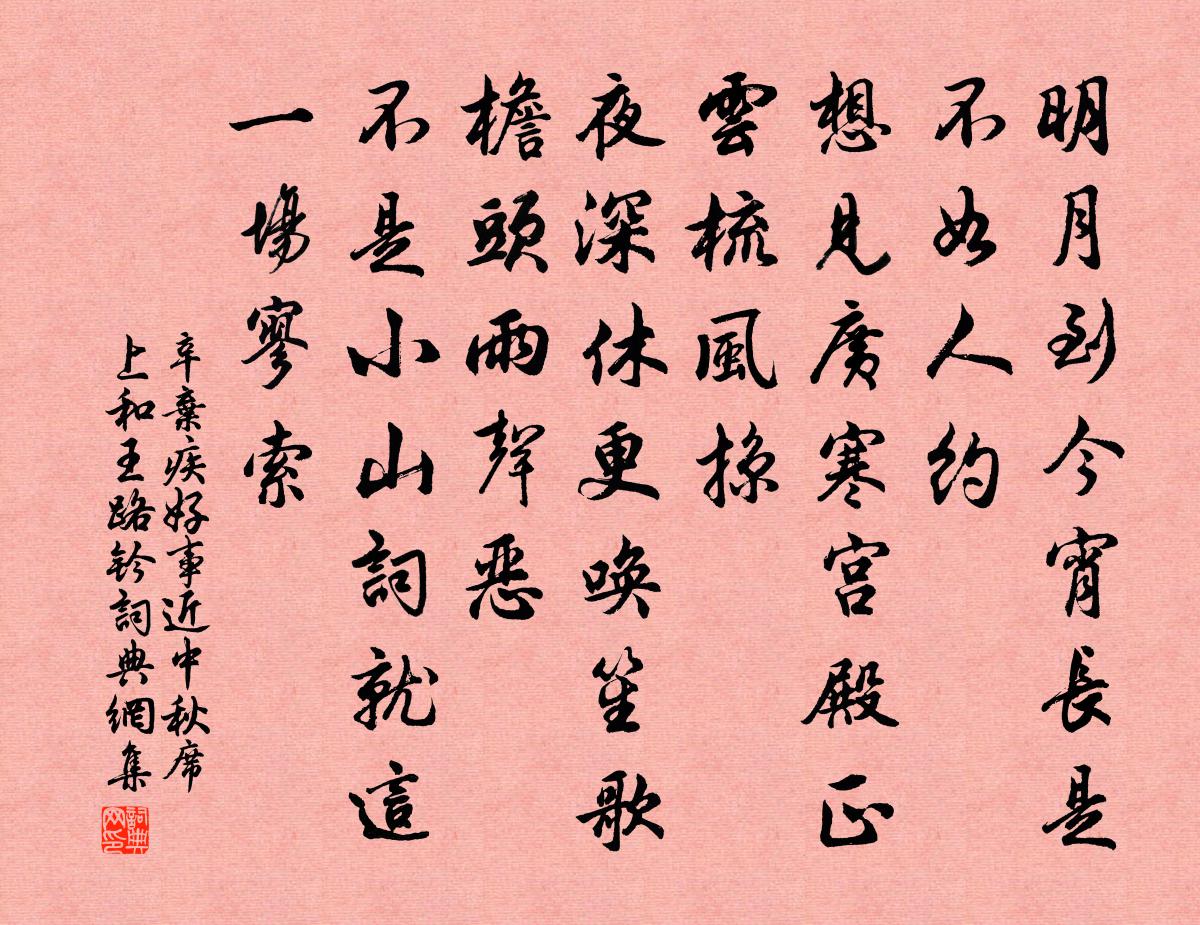 明月到今宵長是
不如人約
想見廣寒宮殿正
雲梳風掠
夜深休更喚笙歌
檐頭雨聲惡
不是小山詞就這
一場寥索
辛棄疾好事近中秋席
上和王路鈐詞典網集
詞典網印